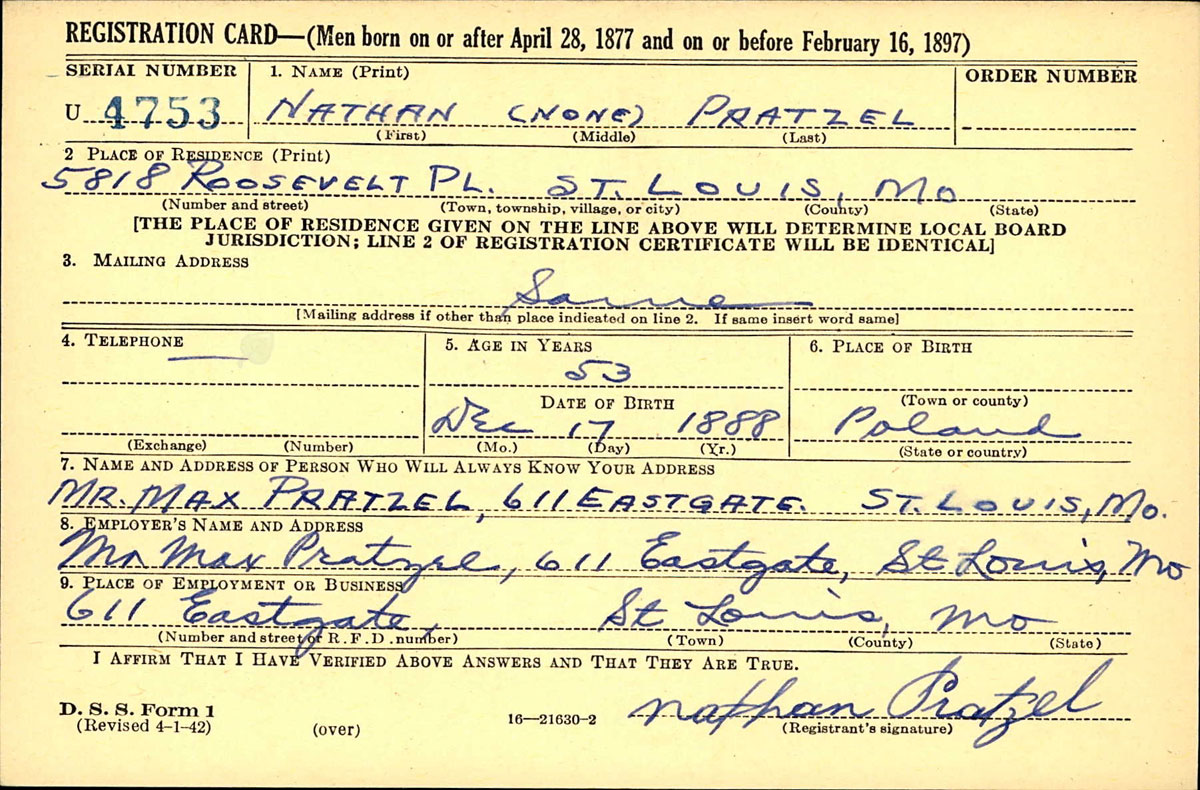 REGISTRATION CARD—(Men born on or after April 28, 1877 and on or before February 16, 1897)
SERIAL NUMBER
1. NAME (Print)
ORDER NUMBER
U 4753
NATHAN (NONE) PRATZEL
(First) (Middle) (Last)
2 PLACE OF RESIDENCE (Print)
5818 ROOSEVELT PL. ST. LOUIS, MO
(Number and street) (Town, township, village, or city) (County) (State)
[THE PLACE OF RESIDENCE GIVEN ON THE LINE ABOVE WILL DETERMINE LOCAL BOARD
JURISDICTION; LINE 2 OF REGISTRATION CERTIFICATE WILL BE IDENTICAL]
3. MAILING ADDRESS
Same
[Mailing address if other than place indicated on line 2. If same insert word same]
4. TELEPHONE
5. AGE IN YEARS
6. PLACE OF BIRTH
53
DATE OF BIRTH
(Town or county)
Dec 17 1888
Poland
(Exchange) (Number)
(Mo.) (Day) (Yr.)
(State or country)
7. NAME AND ADDRESS OF PERSON WHO WILL ALWAYS KNOW YOUR ADDRESS
MR. MAX PRATZEL, 611 EASTGATE. ST. LOUIS, MO.
8. EMPLOYER'S NAME AND ADDRESS
Mr Max Pratzel, 611 Eastgate, St Louis, Mo
9. PLACE OF EMPLOYMENT OR BUSINESS
611 Eastgate, St Louis, Mo
(Number and street or R. F. D. number) (Town) (County) (State)
I AFFIRM THAT I HAVE VERIFIED ABOVE ANSWERS AND THAT THEY ARE TRUE.
Nathan Pratzel
D. S. S. Form 1
(Revised 4-1-42) (over) 16—21630-2 (Registrant's signature)